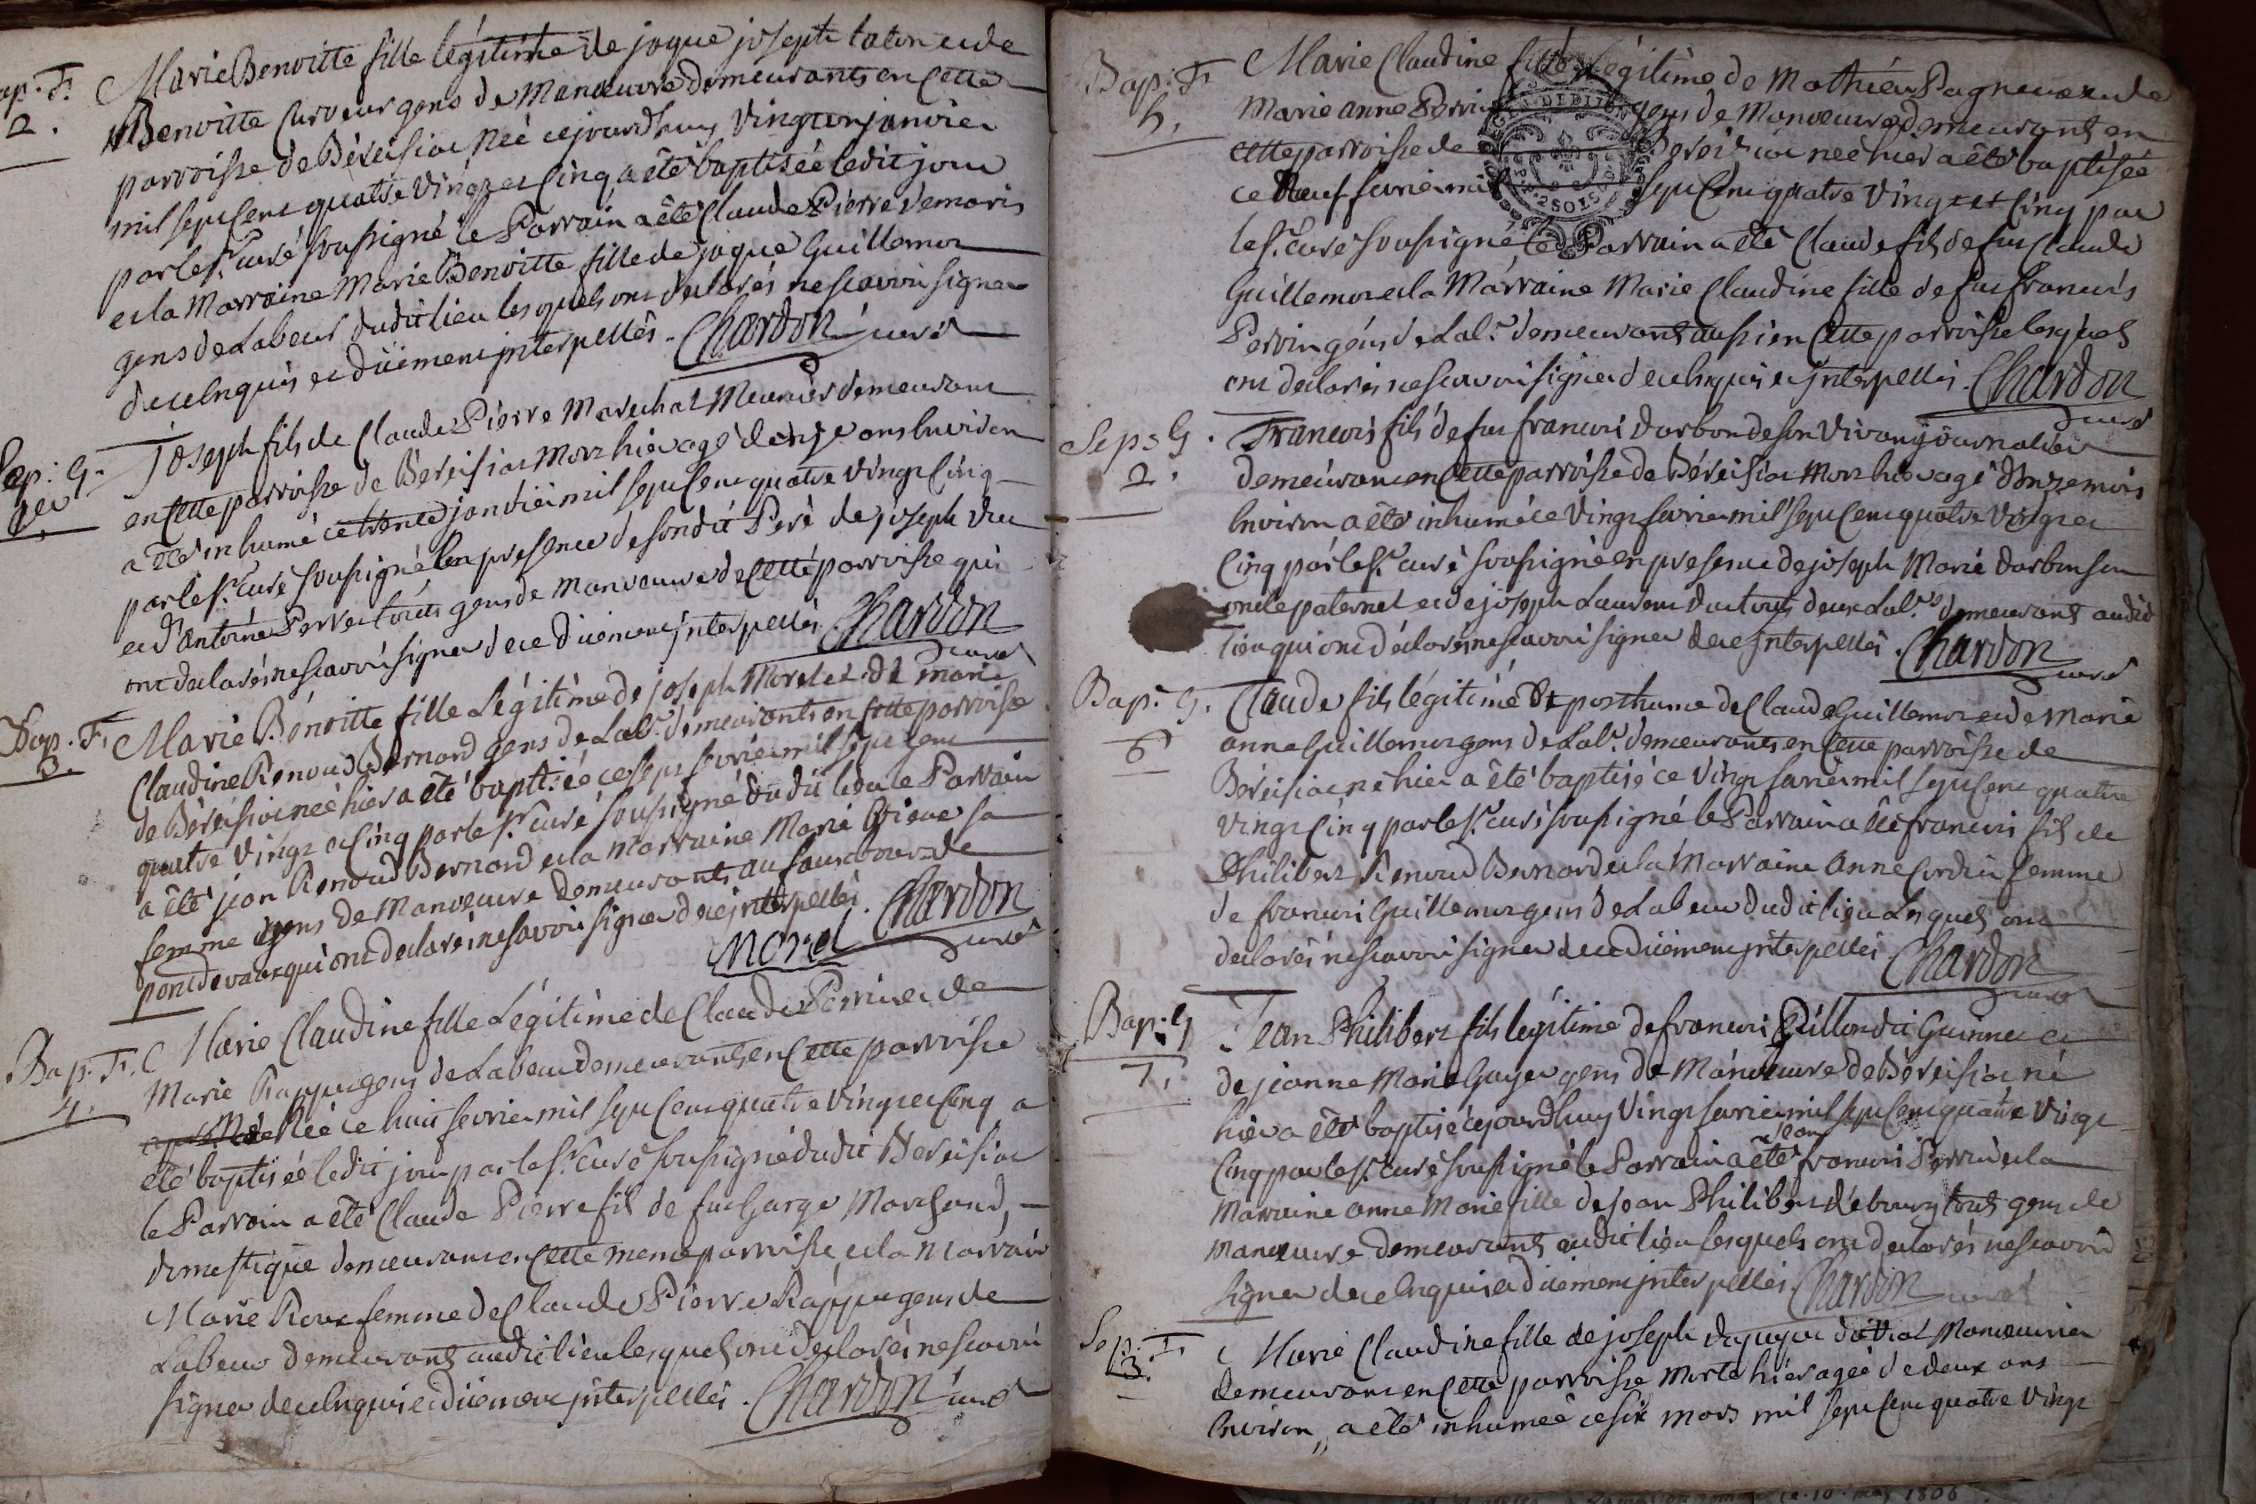 Bap. F.
2.
Marie Benoitte fille légitime de jaque joseph taton et de
Benoitte Curveur gens de Manœuvre demeurants en Cette
parroisse de Béreisiat Née cejourdhuy vingt un janvier
mil sept Cent quatre vingt et Cinq a été baptisée ledit jour
par le Sr. curé soussigné le Parrain a été Claude Pierre demaris
et la Marraine Marie Benoitte fille de jaque Guillemot
gens de Labeur dudit lieu lesquels ont déclarés ne scavoir signer
de ce Enquis et düement interpellés. Chardon curé
Sep: G.
1er
Joseph fils de Claude Pierre Marechal Meunier demeurant
en Cette parroisse de Béreisiat Mort hier agé de onze ans Environ
a été inhumé ce trente janvier mil sept Cent quatre vingt Cinq
par le Sr. Curé soussigné En presence de son dit Peré de joseph
et d'antoine Perret touts gens de Manoeuvre de Cette parroisse qui
ont declarés ne scavoir signer de ce düement interpellés Chardon
curé
Bap. F.
3.
Marie Bénoitte fille Légitime de joseph Morel et de marie
Claudine Renoud Bernard gens de Labr. demeurants en Cette parroisse
de Béréisiat née hier a été baptisée ce sept fevrier mil sept Cent
quatre vingt et Cinq par le Sr. curé soussigné dudit lieu le Parrain
a été jean Renoud Bernard et la Marraine Marie sa
femme gens de Manoeuvre demeurants au de
pont devaux qui ont déclarés ne scavoir signer de ce interpellés. Chardon
Morel curé
Bap. F.
4.
Marie Claudine fille Légitime de Claude Perrin et de
Marie Rappy gens de Labeur demeurants en Cette parroisse
Née ce huit fevrier mil sept Cent quatre vingt et Cinq a
été baptisée ledit jour par le Sr. Curé soussigné dudit Bereisiat
le Parrain a été Claude Pierre fils de feu George Marchand,
domestique demeurant en Cette meme parroisse et la Marraine
Marie Roux femme de Claude Pierre Rappy gens de
Labeur demeurants audit lieu lesquels ont declarés ne scavoir
signer de ce Enquis et düement interpellés. Chardon curé
Bap: F
5.
Marie Claudine fille Légitime de Mathieu Pagneux et de
Marie anne Perrin gens de Manoeuvre demeurants en
cette parroisse de Béréisiat née hier a été baptisée
ce neuf fevrier mil sept Cent quatre vingt et Cinq par
le Sr. Curé soussigné, le Parrain a été Claude fils de feu Claude
Guillemot et la Marraine Marie Claudine fille de feu francois
Perrin gens de Labr. demeurants aussi en Cette parroisse lesquels
ont declarés ne scavoir signer de ce Enquis et interpellés. Chardon
curé
Sep: G.
2.
Francois fils de feu francois Darbon de son vivant journalier
demeurant en Cette parroisse de Béreisiat Mort hier agé d'onze mois
Environ a été inhumé ce vingt fevrier mil sept Cent quatre vingt et
Cinq par le Sr. curé soussigné en presence de joseph Marie Darbon son
oncle paternel et de joseph Laurent touts deux Labrs. demeurants audit
lieu qui ont déclarés ne scavoir signer de ce interpellés. Chardon
curé
Bap: G.
6
Claude fils légitime et posthume de Claude Guillemot et de Marie
anne Guillemot gens de Labr. demeurants en Cette parroisse de
Béreisiat né hier a été baptisé ce vingt fevrier mil sept Cent quatre
vingt Cinq par le Sr. curé soussigné le Parrain a été francois fils de
Philibert Renoud Bernard et la Marraine anne femme
de francois Guillemot gens de Labeur dudit lieu lesquels ont
declarés ne scavoir signer de ce düement interpellés Chardon
curé
Bap: G
7.
Jean Philibert fils légitime de francois Guillon dit Guinnet et
de jeanne Marie Goyet gens de Manoeuvre de Béreisiat né
hier a été baptisé cejourdhuy vingt fevrier mil sept Cent quatre vingt
jean
Cinq par le Sr. curé soussigné le Parrain a été francois Perrin et la
Marraine anne Marie fille de jean Philibert debourg touts gens de
Manoeuvre demeurants audit lieu lesquels ont declarés ne scavoir
signer de ce Enquis et düement interpellés Chardon curé
Sep. F.
3.
Marie Claudine fille de joseph dupuy dit Vial Manoeuvrier
demeurant en Cette parroisse Morte hier agée de deux ans
Environ, a été inhumée ce six mars mil sept Cent quatre vingt